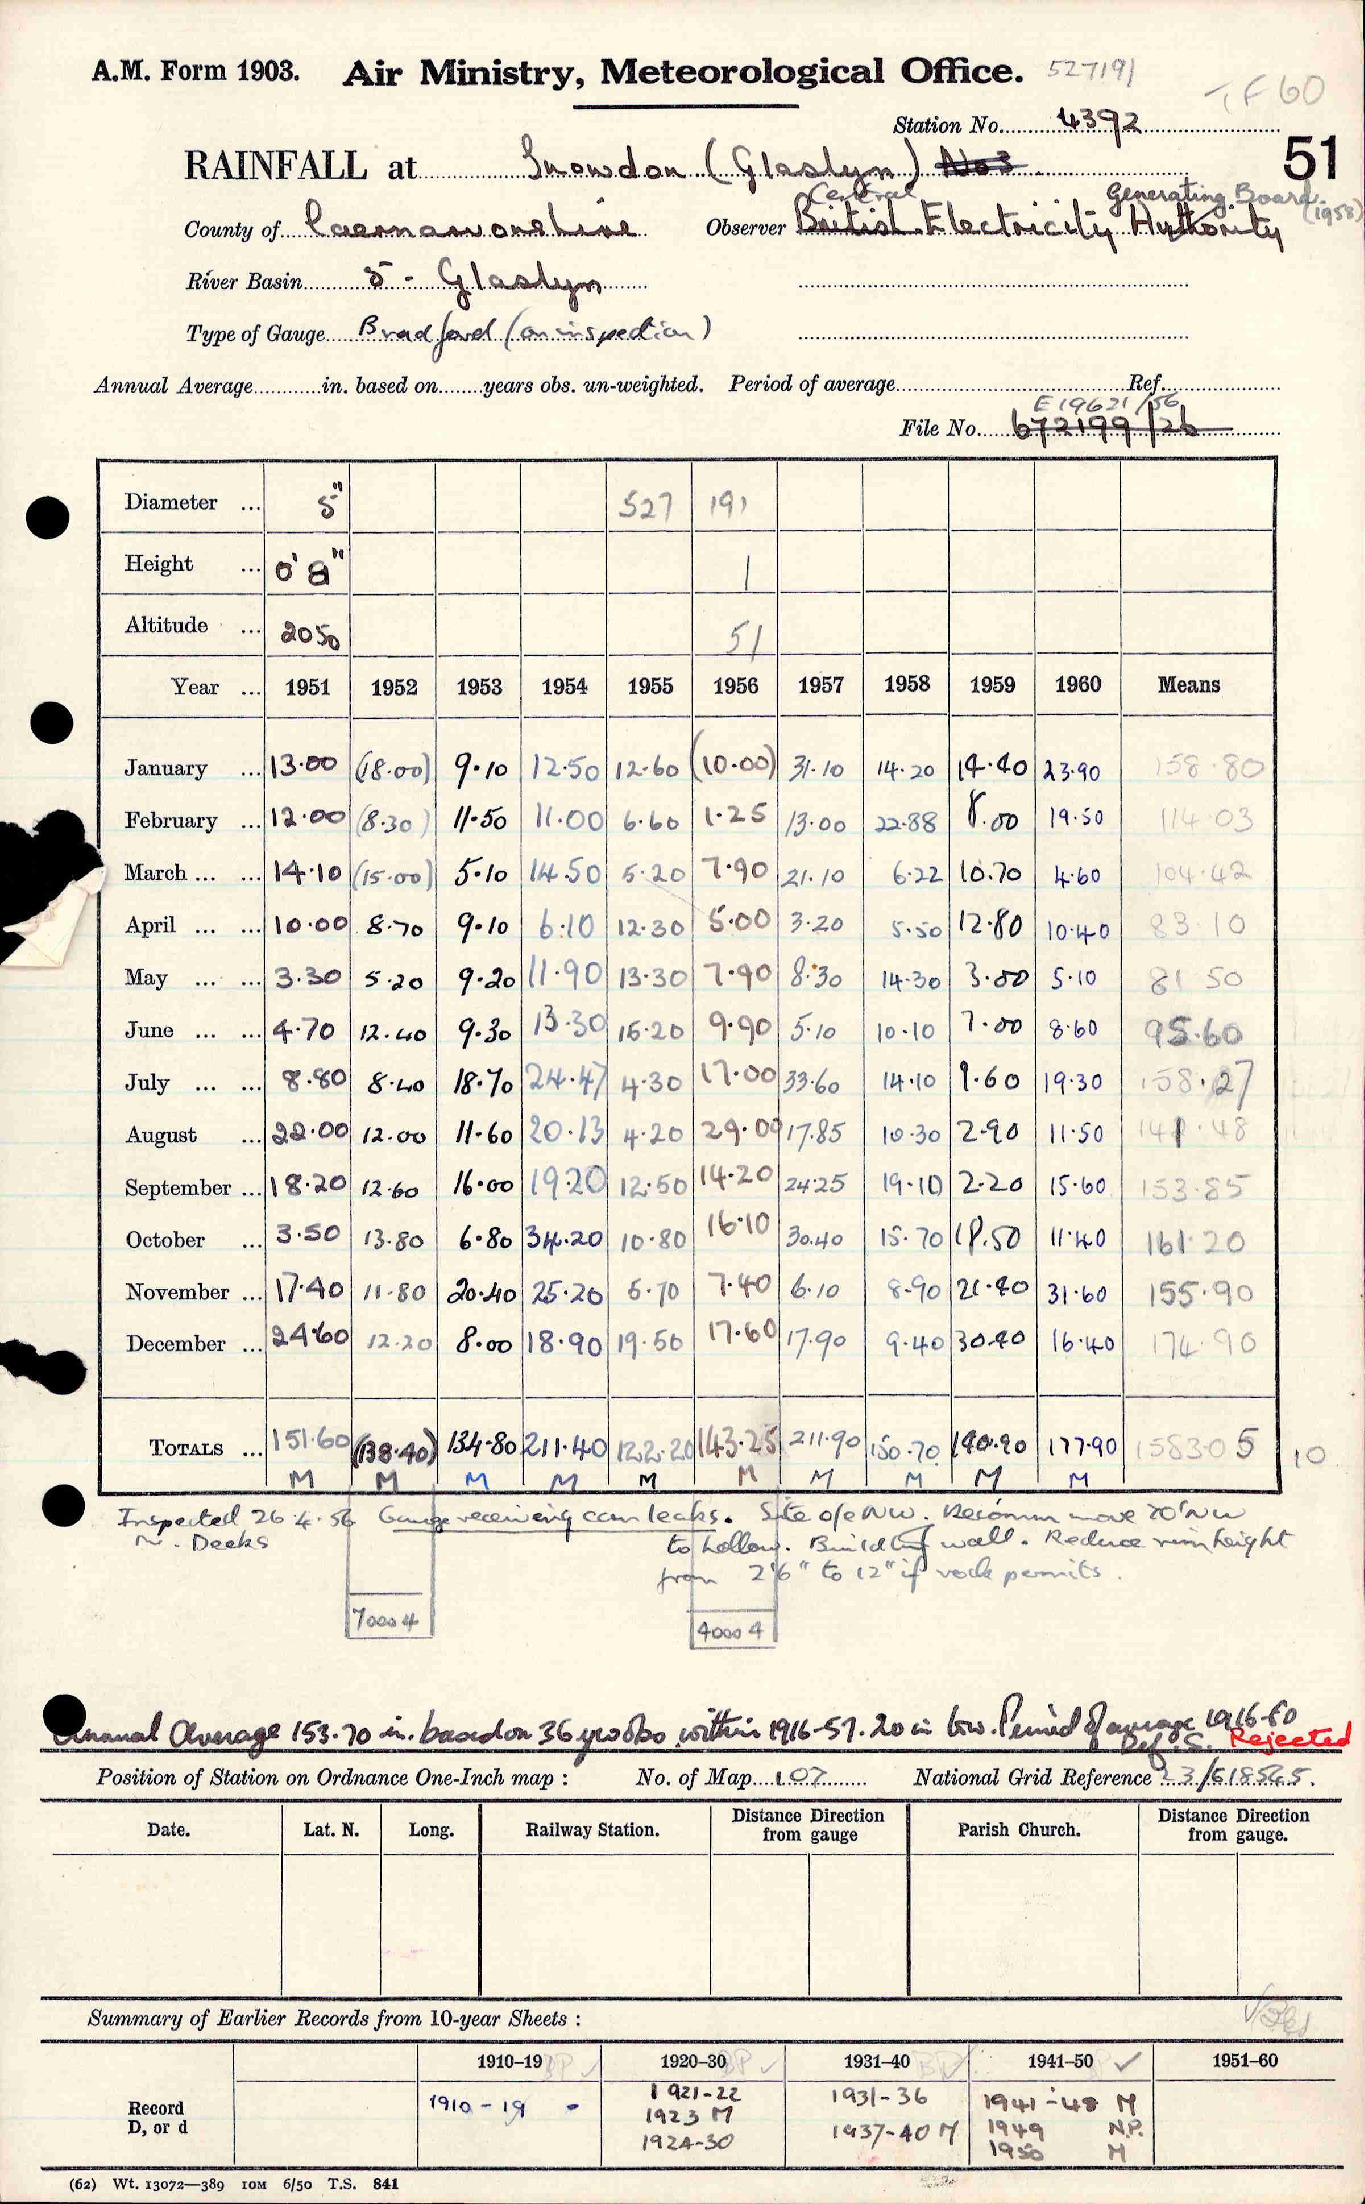 A.M. Form 1903. Air Ministry, Meteorological Office. 527191
TF60
Station No. 4392
51
RAINFALL at Snowdon (Glaslyn) No3
Central Generating Board (1958)
County of Caernarvonshire Observer British Electricity Authority
River Basin 5 - Glaslyn
Type of Gauge Bradford (on inspection)
Annual Average in. based on years obs. un-weighted. Period of average Ref.
E19621/56
File No. 672199/26
Diameter ... 5" 527 191
Height ... 0' 8" 1
Altitude ... 2050 51
Year ... 1951 1952 1953 1954 1955 1956 1957 1958 1959 1960 Means
January ... 13.00 (18.00) 9.10 12.50 12.60 (10.00) 31.10 14.20 14.40 23.90 158.80
February ... 12.00 (8.30) 11.50 11.00 6.60 1.25 13.00 22.88 8.00 19.50 114.03
March ... ... 14.10 (15.00) 5.10 14.50 5.20 7.90 21.10 6.22 10.70 4.60 104.42
April ... ... 10.00 8.70 9.10 6.10 12.30 5.00 3.20 5.50 12.80 10.40 83.10
May ... ... 3.30 5.20 9.20 11.90 13.30 7.90 8.30 14.30 3.00 5.10 81.50
June ... ... 4.70 12.40 9.30 13.30 15.20 9.90 5.10 10.10 7.00 8.60 95.60
July ... ... 8.80 8.40 18.70 24.47 4.30 17.00 33.60 14.10 9.60 19.30 158.27
August ... 22.00 12.00 11.60 20.13 4.20 29.00 17.85 10.30 2.90 11.50 141.48
September ... 18.20 12.60 16.00 19.20 12.50 14.20 24.25 19.10 2.20 15.60 153.85
October ... 3.50 13.80 6.80 34.20 10.80 16.10 30.40 15.70 18.50 11.40 161.20
November ... 17.40 11.80 20.40 25.20 5.70 7.40 6.10 8.90 21.40 31.60 155.90
December ... 24.60 12.20 8.00 18.90 19.50 17.60 17.90 9.40 30.40 16.40 174.90
TOTALS ... 151.60 (138.40) 134.80 211.40 122.20 143.25 211.90 150.70 140.90 177.90 1583.05 10
M M M M M M M M M M
Inspected 26.4.56 Gauge receiving can leaks. Site o/e NW. Recomm move 70' NW
Mr. Deeks to hollow. Build wall. Reduce rim height
from 2'6" to 12" if rock permits.
70004 40004
Annual Average 153.70 in. based on 36 yrs obs within 1916-57. 20 in low. Period of average 1916-60
Ref. S. Rejected
Position of Station on Ordnance One-Inch map : No. of Map 107 National Grid Reference 23/618545.
Date. Lat. N. Long. Railway Station. Distance Direction from gauge Parish Church. Distance Direction from gauge.
Summary of Earlier Records from 10-year Sheets :
1910–19 1920–30 1931–40 1941–50 ✓ 1951–60
Record D, or d
1910-19 - 1921-22 1931-36 1941-48 M
1923 M 1937-40 M 1949 N.P.
1924-30 1950 M
(62) Wt. 13072—389 10M 6/50 T.S. 841